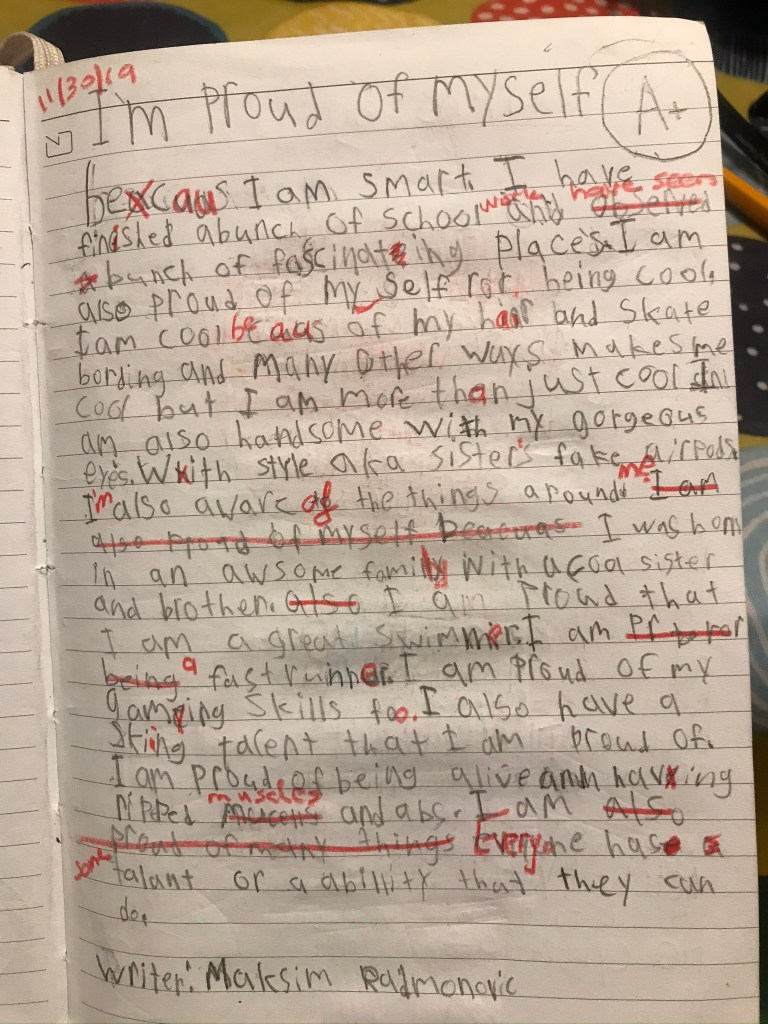 11/30/19
I'm Proud Of Myself A+
because I am smart. I have
work have seen
finished abunch of school and observed
bunch of fascinating places. I am
also proud of my self for being cool.
I am cool be aus of my hair and skate
bording and many other ways makes me
cool but I am more than just cool
am also handsome with my gorgeous
eyes. With style aka sister's fake airpods
me
I'm also aware of the things around I am
also proud of myself beacuas I was born
in an awsome family with a sister
and brother. also I am Proud that
I am a great swimmer. I am Pr for
being a fast runner. I am Proud of my
gaming skills too. I also have a
skiing talent that I am proud of.
I am Proud of being alive and having
muscles
ripped and abs. I am also
proud of many things Everyone has a
some
talant or a abillity that they can
do.
Writer: Maksim Radmonovic